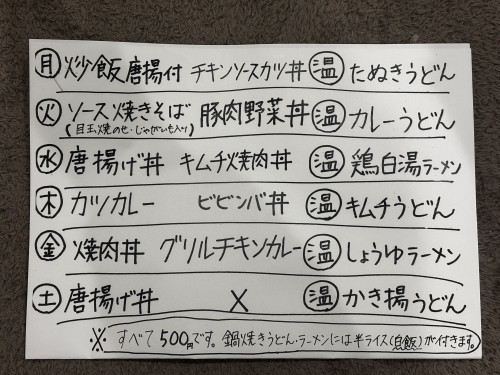 月 炒飯唐揚付 チキンソースカツ丼 温 たぬきうどん
火 ソース焼きそば 豚肉野菜丼 温 カレーうどん
(目玉焼のせ・じゃがいも入り)
水 唐揚げ丼 キムチ焼肉丼 温 鶏白湯ラーメン
木 カツカレー ビビンバ丼 温 キムチうどん
金 焼肉丼 グリルチキンカレー 温 しょうゆラーメン
土 唐揚げ丼 × 温 かき揚うどん
※ すべて500円です。鍋焼きうどん・ラーメンには半ライス(白飯)が付きます。